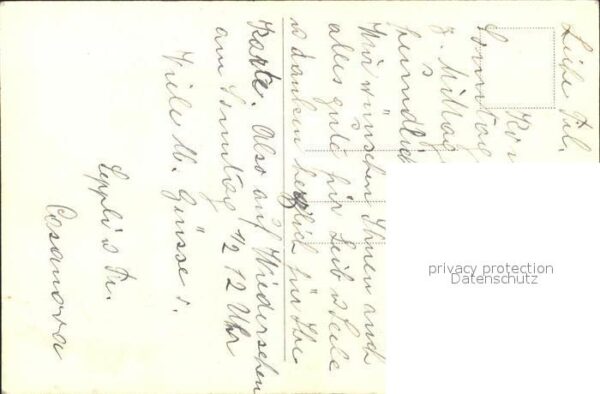 Liebe Frl.
Sonntag
z. Mittag
freundlich
Wir wünschen Ihnen auch
alles gute für Leib u Seele
u danken herzlich für Ihre
Karte. Also auf Wiedersehen
am Sonntag 1/2 12 Uhr
Viele lb. Grüsse v.
Seppli u Fr.
Casanova
privacy protection
Datenschutz